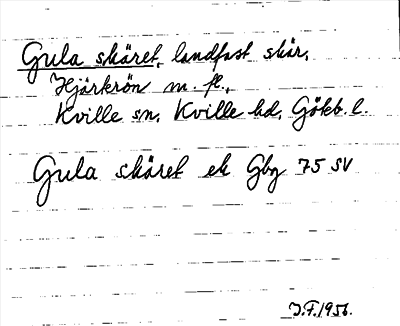 Gula skäret, landfast skär,
Hjärkrön m. fl.,
Kville sn, Kville hd, Götb. l.
Gula skäret ek Gbg 75 SV
J.F. 1956.